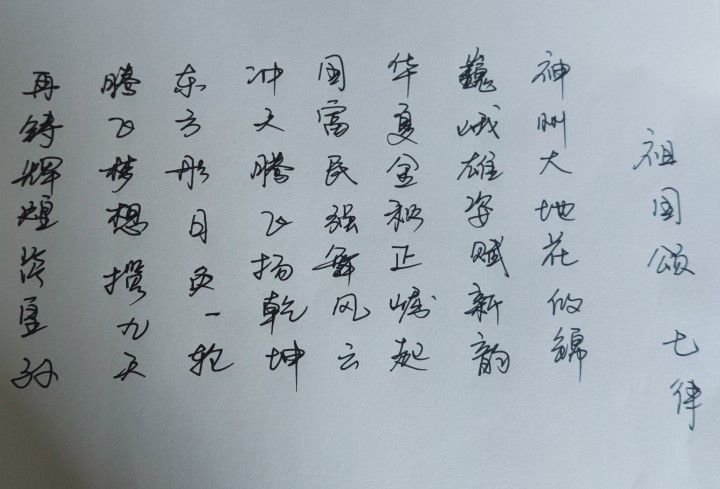 祖国颂 七律
神州大地花似锦
巍峨雄姿赋新韵
华夏正崛起
国富民强舞风云
冲天腾飞扬乾坤
东方彤日一轮
腾飞梦想揽九天
再铸辉煌孙